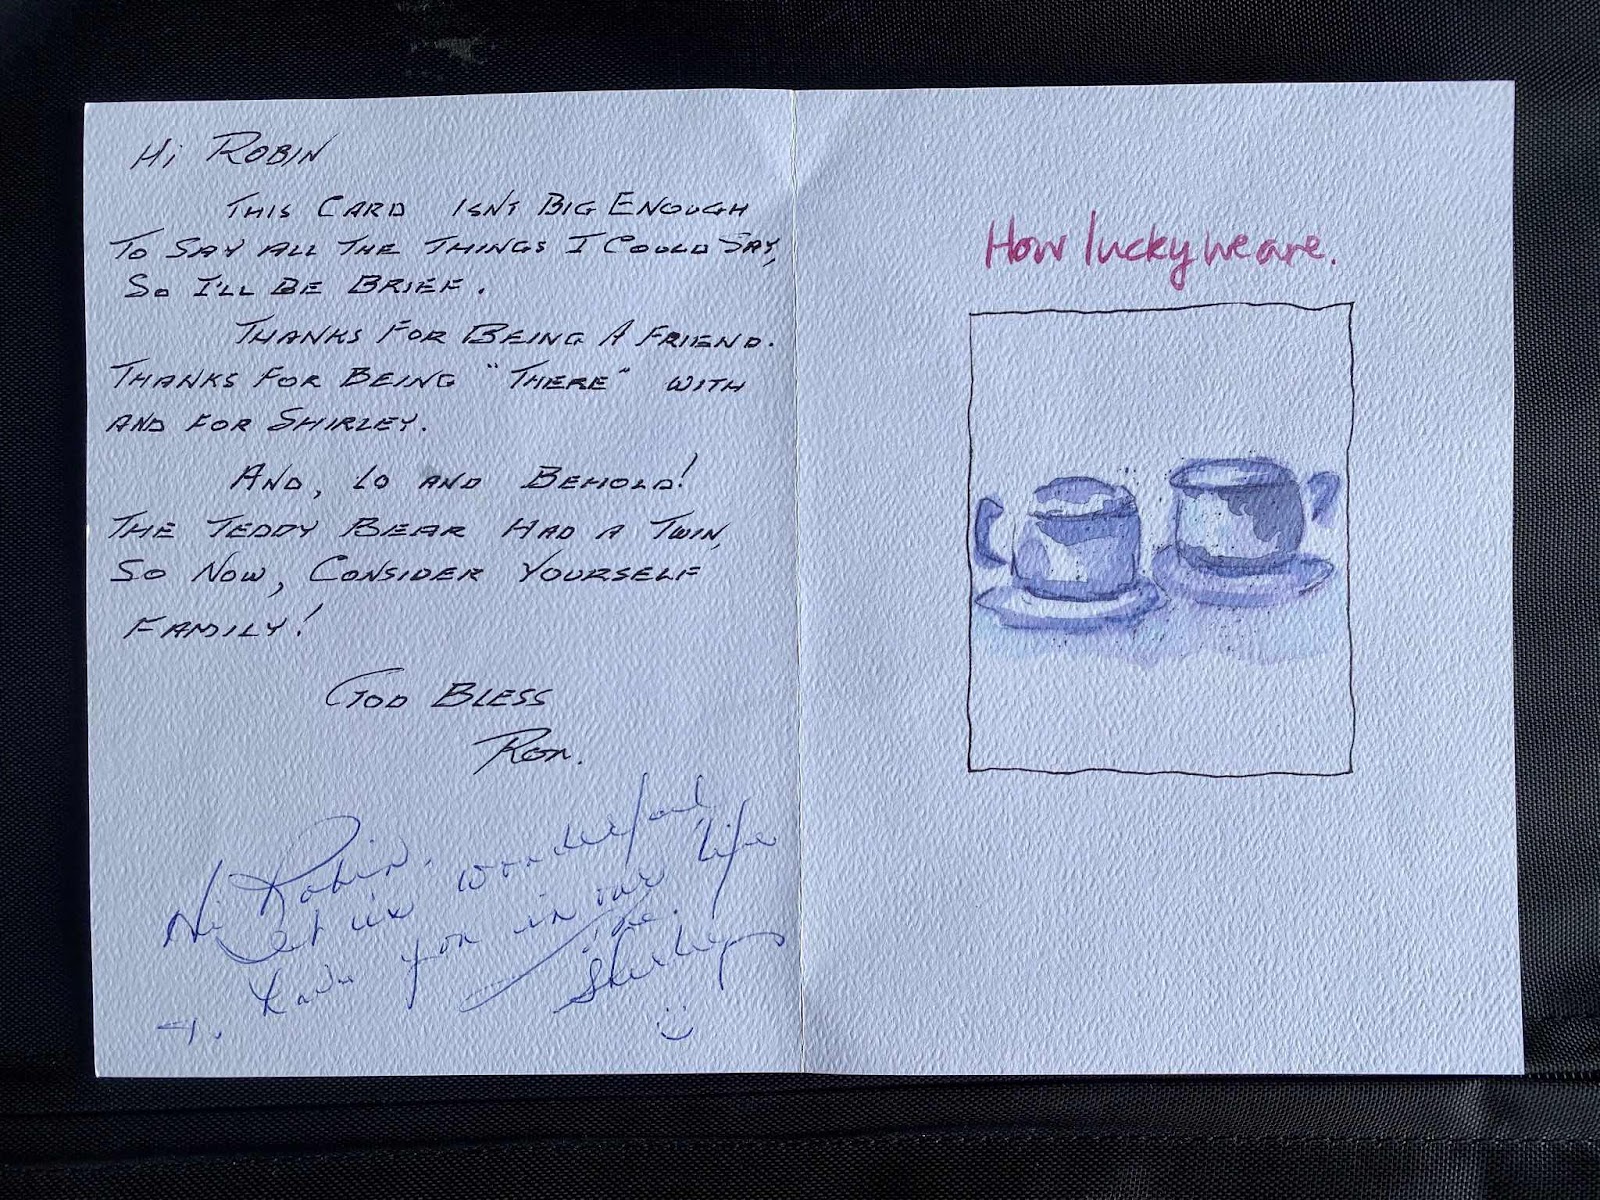 Hi ROBIN
THIS CARD ISN'T BIG ENOUGH
TO SAY ALL THE THINGS I COULD SAY,
SO I'LL BE BRIEF.
THANKS FOR BEING A FRIEND.
THANKS FOR BEING "THERE" WITH
AND FOR SHIRLEY.
AND, LO AND BEHOLD!
THE TEDDY BEAR HAD A TWIN,
SO NOW, CONSIDER YOURSELF
FAMILY!
GOD BLESS
RON.
Hi Robin.
wonderful,
have you in our life
Shirley
How lucky we are.